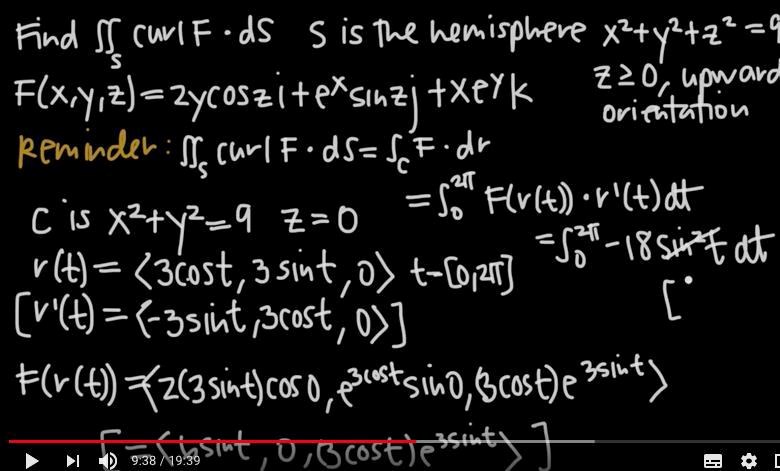 Find ∬ₛ curl F · dS   S is the hemisphere x²+y²+z² = 9
F(x,y,z) = 2ycoszi + eˣsinzj + xeʸk   z ≥ 0, upward
orientation
Reminder: ∬ₛ curl F · dS = ∫c F · dr
= ∫₀^2π F(r(t)) · r'(t) dt
C is x²+y² = 9   z = 0
= ∫₀^2π -18 sin²t dt
r(t) = ⟨3cost, 3sint, 0⟩   t-[0,2π]
[r'(t) = ⟨-3sint, 3cost, 0⟩]   [
F(r(t)) = ⟨2(3sint)cos0, e^3cost sin0, (3cost)e^3sint⟩
[ = ⟨6sint, 0, (3cost)e^3sint⟩ ]
9:38 / 19:39